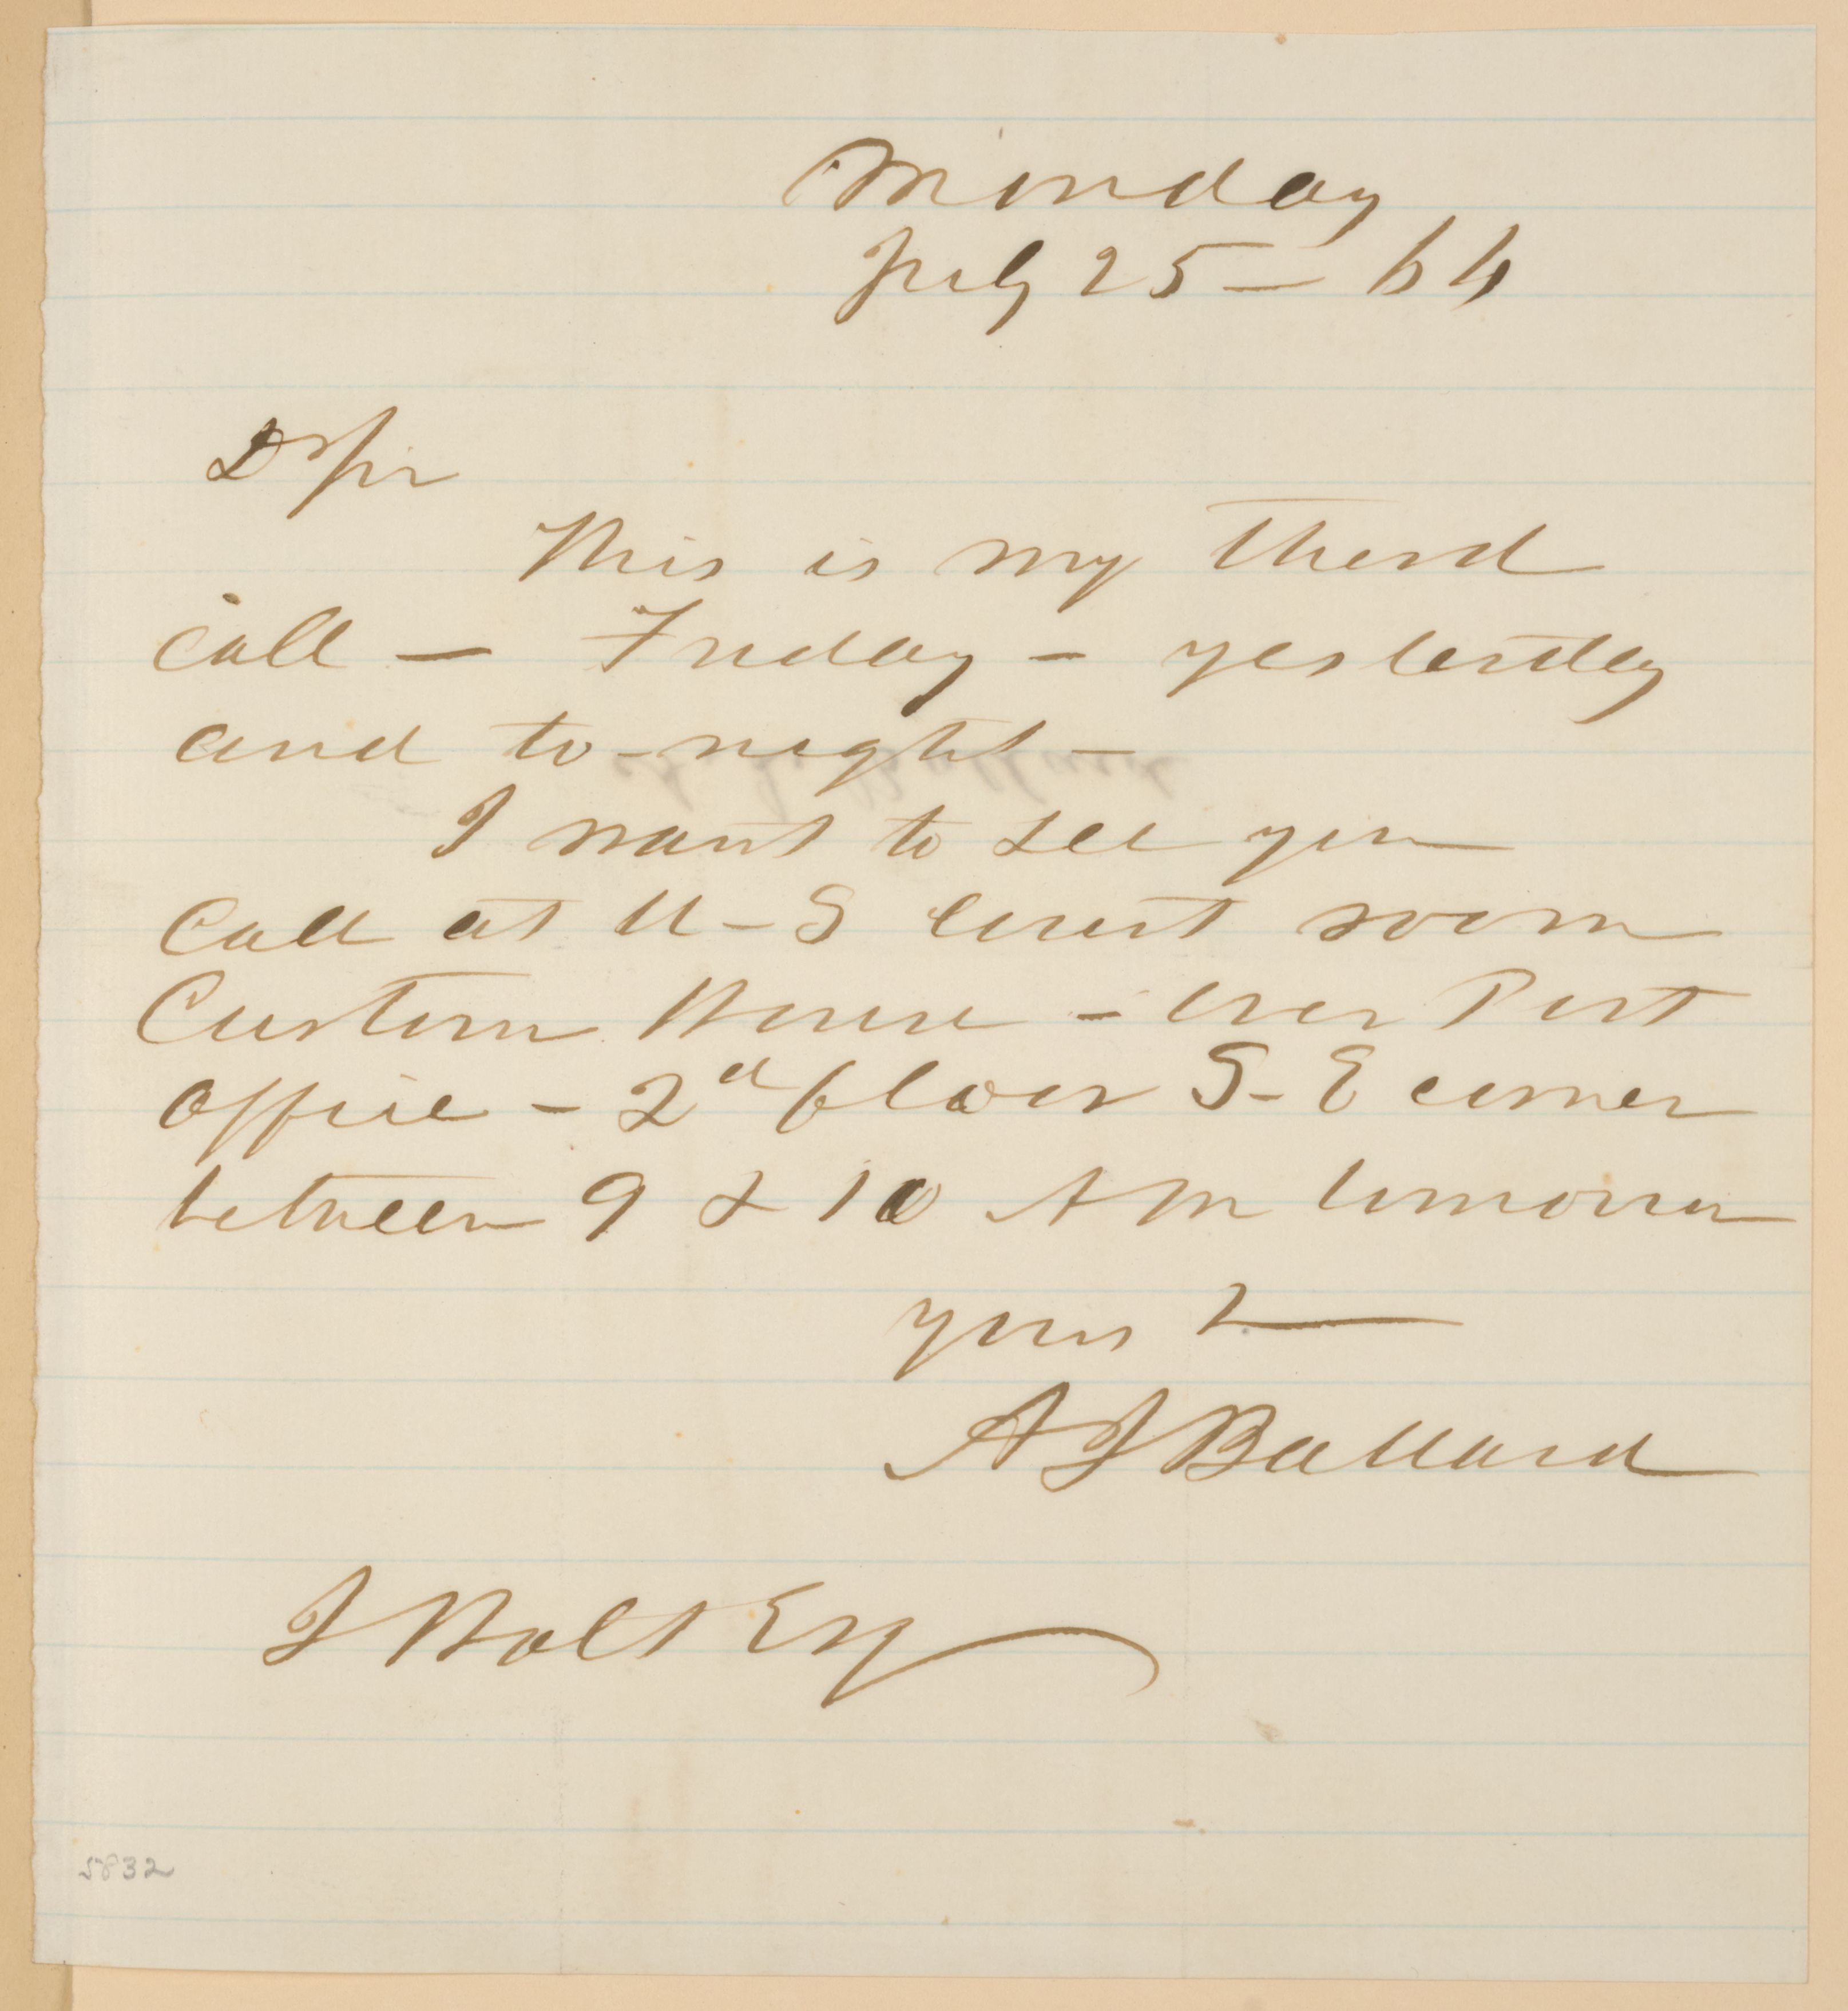 Monday
July 25 - 64
Dr Sir
This is my third
call - Friday - yesterday
and to-night -
I want to see you
Call at U-S Court room
Custom House - over Post
office - 2d floor S-E corner
between 9 & 10 A M tomorrow
yours &
A J Ballard
J Holt Esq
5832